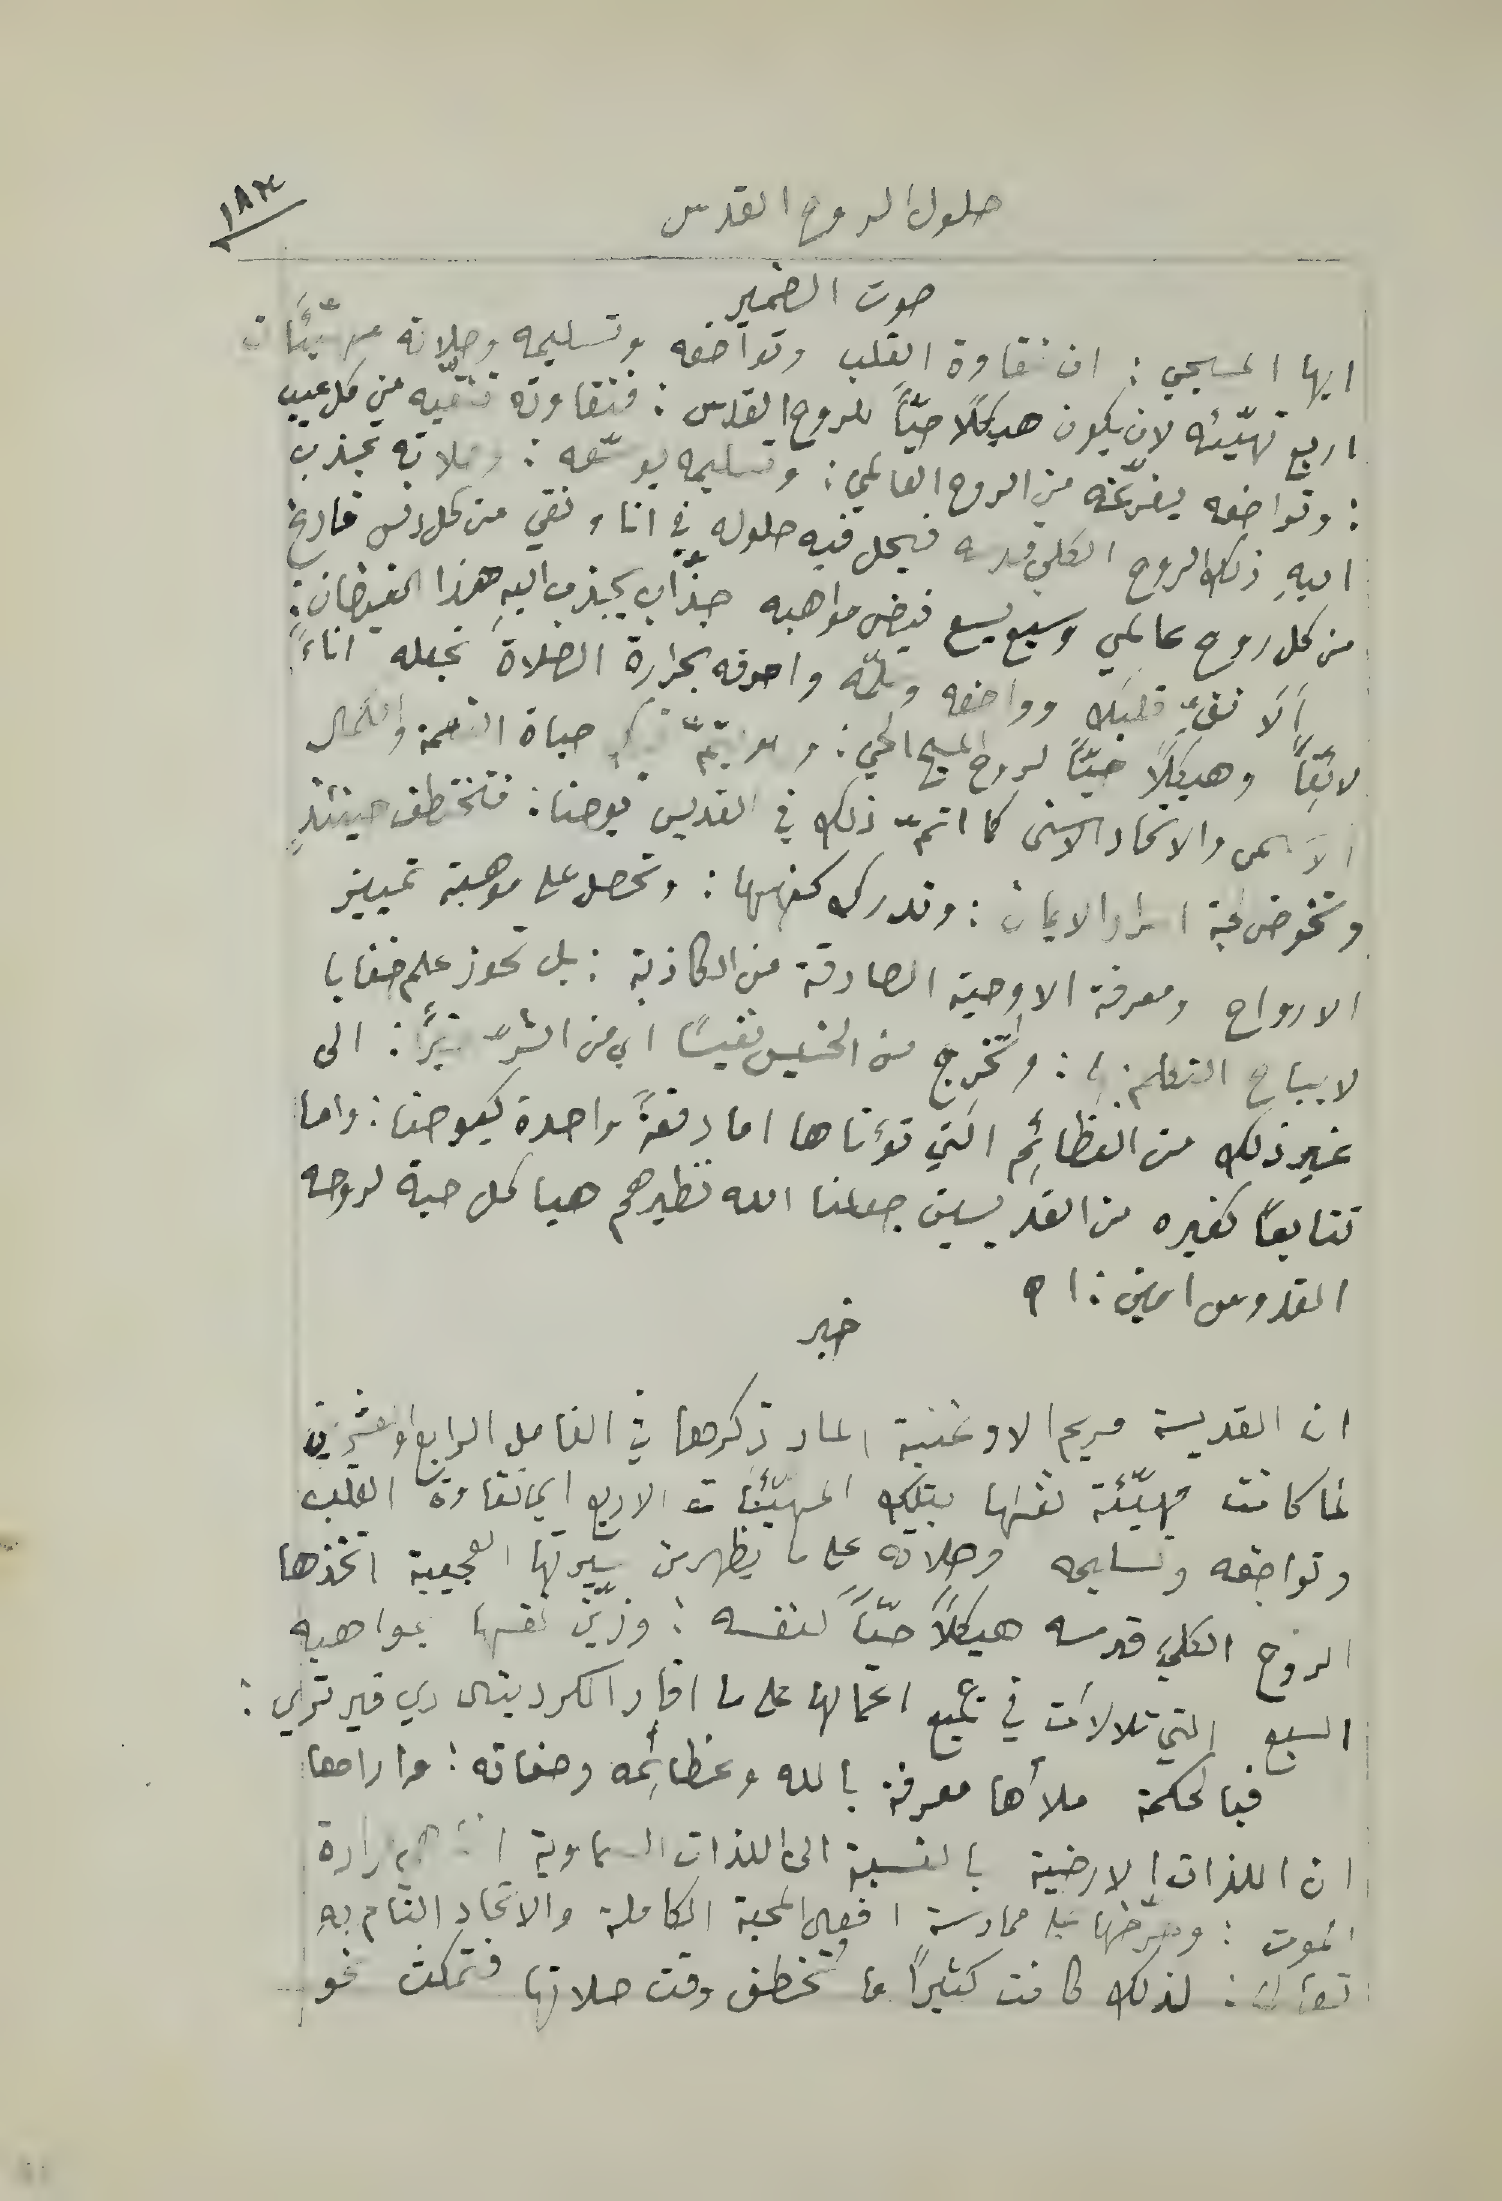 حلول الروح القدس
١٨٣
صوت الضمير
ايها المسيحي : ان نقاوة القلب وتواضعه وتسليمه وصلاته مهيّئَات
اربع تهيّئه لان يكون هيكلًا حيًّا للروح القدس : فنقاوته تنقّيه من كل عيب
: وتواضعه يفرّغه من الروح العالمي : وتسليمه يوسّعه : وصلاته تجذب
اليهِ ذلك الروح الكلي قدسه فيحل فيه حلوله في اناء نقي من كل دنس فارغ
من كل روح عالمي وسيع يسع فيض مواهبه جذّاب يجذب اليهِ هذا الفيضان :
اَلَا نقِّ قلبك وواضعه وسلّمه واحرقه بحرارة الصلاة تجعله اناءً
لائقًا وهيكلًا حيًّا لروح المسيح الحي : وهو يتمّ حياة النعمة والكمال
الاسمى والاتحاد الاسنى كما اتمّ ذلك في القديس يوحنا : فتختطف حينئذٍ
وتخوض لجة اسرار الايمان : وتدرك كنهها : وتحصل على موهبة تمييز
الارواح ومعرفة الاوحية الصادقة من الكاذبة : بل تحوز علم خفايا
لا يباح التكلم بها : وتُخرج من الخسيس نفيسًا اي من الشرّ خيرًا : الى
غير ذلك من العظائم التي تؤتاها اما دفعةً واحدة كيوحنا : واما
تتابعًا كغيره من القديسين جعلنا الله نظيرهم هياكل حية لروحه
القدوس امين : اه
خبر
ان القديسة مريم الاوغنية المار ذكرها في الفاصل الرابع والعشرين
لما كانت مهيّئة نفسها بتلك المهيّئَات الاربع اي نقاوة القلب
وتواضعه وتسليمه وصلاته على ما يظهر من سيرتها العجيبة اتخذها
الروح الكلي قدسه هيكلًا حيًّا لنفسه : وزيّن نفسها بمواهبه
السبع التي تلالات في جميع اعمالها على ما افاد الكردينال دي فيرتري :
فبالحكمة ملأها معرفة بالله وعظائمه وصفاته : واراها
ان اللذات الارضية بالنسبة الى اللذات السماوية مرارة
الموت : وحرّضها على ممارسة افعال المحبة الكاملة والاتحاد التام بهِ
تعالى : لذلك كانت كثيرًا ما تُخطف وقت صلاتها فتمكث نحو